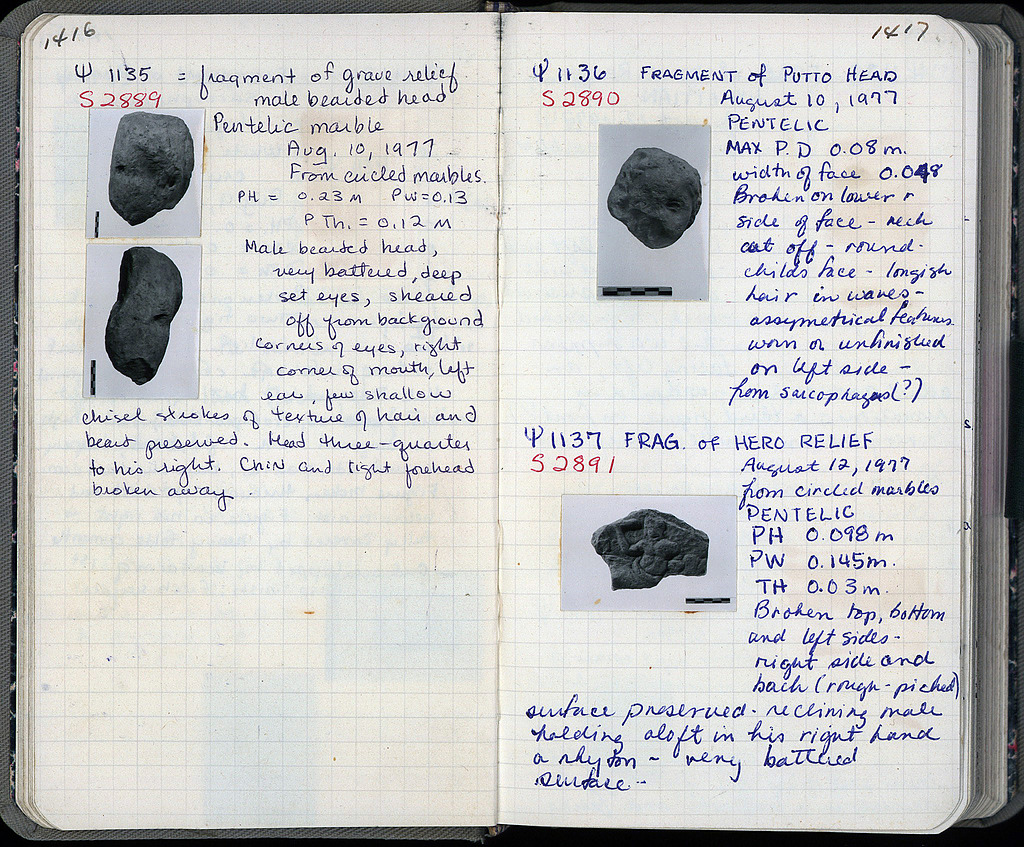 1416
Ψ 1135 = fragment of grave relief
S 2889 male bearded head
Pentelic marble
Aug. 10, 1977
From circled marbles.
PH = 0.23 M PW=0.13
P Th. = 0.12 M
Male bearded head,
very battered, deep
set eyes, sheared
off from background
corners of eyes, right
corner of mouth, left
ear, few shallow
chisel strokes of texture of hair and
beard preserved. Head three-quarter
to his right. Chin and right forehead
broken away.
1417
Ψ 1136 FRAGMENT of PUTTO HEAD
S 2890 August 10, 1977
PENTELIC
MAX P.D 0.08 m.
width of face 0.048
Broken on lower r
side of face - neck
cut off - round.
childs face - longish
hair in waves -
assymetrical features
worn or unfinished
on left side -
from sarcophagus (?)
Ψ 1137 FRAG. of HERO RELIEF
S 2891 August 12, 1977
from circled marbles
PENTELIC
PH 0.098 m
PW 0.145 m.
TH 0.03 m.
Broken top, bottom
and left sides -
right side and
back (rough-picked)
surface preserved. reclining male
holding aloft in his right hand
a rhyton - very battered
surface -